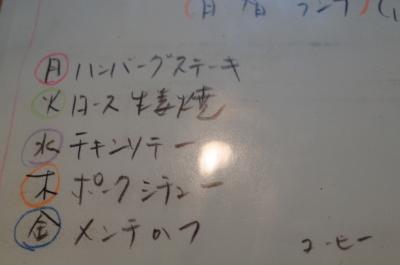 (日替ランチ)
月 ハンバーグステーキ
火 ロース生姜焼
水 チキンソテー
木 ポークシチュー
金 メンチカツ
コーヒー